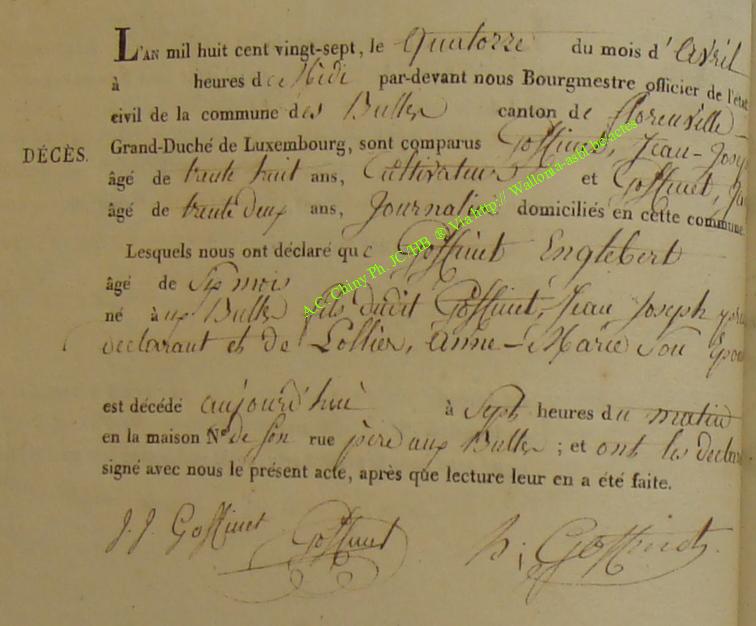 L'AN mil huit cent vingt-sept, le Quatorze du mois d'avril
à heures de Midi par-devant nous Bourgmestre officier de l'état
civil de la commune des Bulles canton de florenville
Grand-Duché de Luxembourg, sont comparus Goffinet, Jean-Josep
DÉCÈS.
âgé de trente huit ans, Cultivateur et Goffinet,
âgé de trente deux ans, Journalier domiciliés en cette commune
Lesquels nous ont déclaré que Goffinet Englebert
âgé de Six mois
né à ux Bulles fils dudit Goffinet, Jean Joseph
declarant et de Lollier, Anne-Marie Son
est décédé aujourd'hui à Sept heures du matin
en la maison N° de Son rue père aux Bulles ; et ont les declar
signé avec nous le présent acte, après que lecture leur en a été faite.
J. J. Goffinet Goffinet h; Goffinet
A.C. Chiny Ph. JC HB ® Via http:// Wallonia-asbl.be/actes